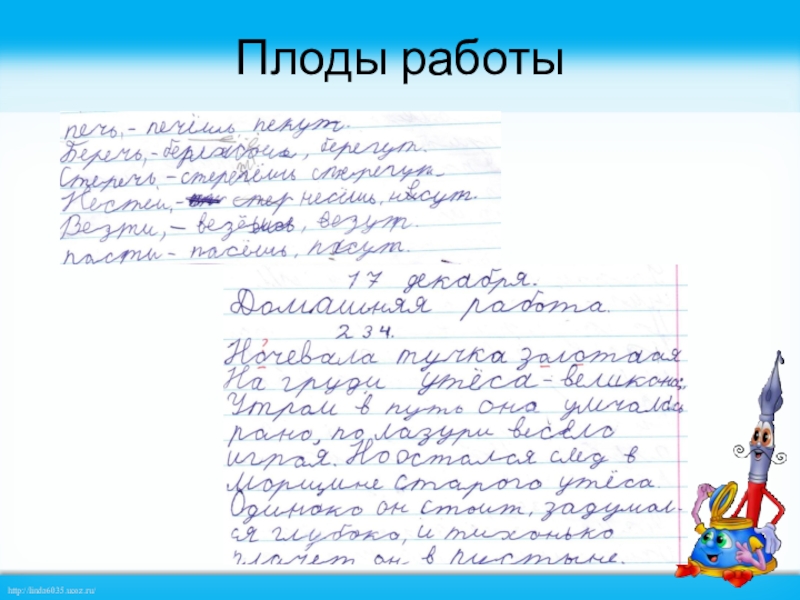 Плоды работы
печь, - печёшь, пекут.
Беречь, - бережёшь, берегут.
Стеречь, - стережёшь стерегут.
Нестей, - стер несёшь, несут.
Везти, - везёшь, везут.
пасти - пасёшь, пасут.
17 декабря.
Домашняя работа.
234.
Ночевала тучка золотаая
На груди утёса - великона;
Утром в путь она умчалась
рано, по лазури весело
играя. Но остался след в
морщине старого утёса.
Одиноко он стоит, задумал-
ся глубоко, и тихонько
плачет он в пустыне.
http://linda6035.ucoz.ru/